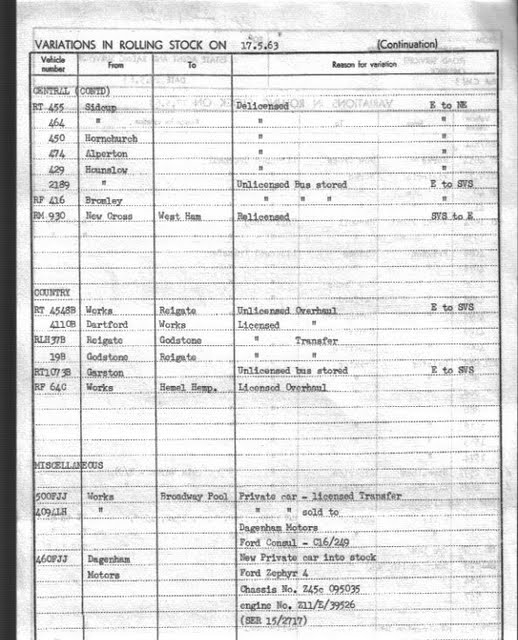 VARIATIONS IN ROLLING STOCK ON 17.5.63 (Continuation)
Vehicle number From To Reason for variation
CENTRAL (CONTD)
RT 455 Sidcup Delicensed E to NE
464 " " "
450 Hornchurch " "
474 Alperton " "
429 Hounslow " "
2189 " Unlicensed Bus stored E to SVS
RF 416 Bromley " " " "
RM 930 New Cross West Ham Relicensed SVS to E
COUNTRY
RT 4548B Works Reigate Unlicensed Overhaul E to SVS
4110B Dartford Works Licensed "
RLH37B Reigate Godstone " Transfer
19B Godstone Reigate " "
RT1073B Garston Unlicensed bus stored E to SVS
RF 64C Works Hemel Hemp. Licensed Overhaul
MISCELLANEOUS
500FJJ Works Broadway Pool Private car - licensed Transfer
" " " sold to
Dagenham Motors
Ford Consul - C16/249
460FJJ Dagenham New Private car into stock
Motors Ford Zephyr 4
Chassis No. Z45c 095035
engine No. Z11/E/39526
(SER 15/2717)